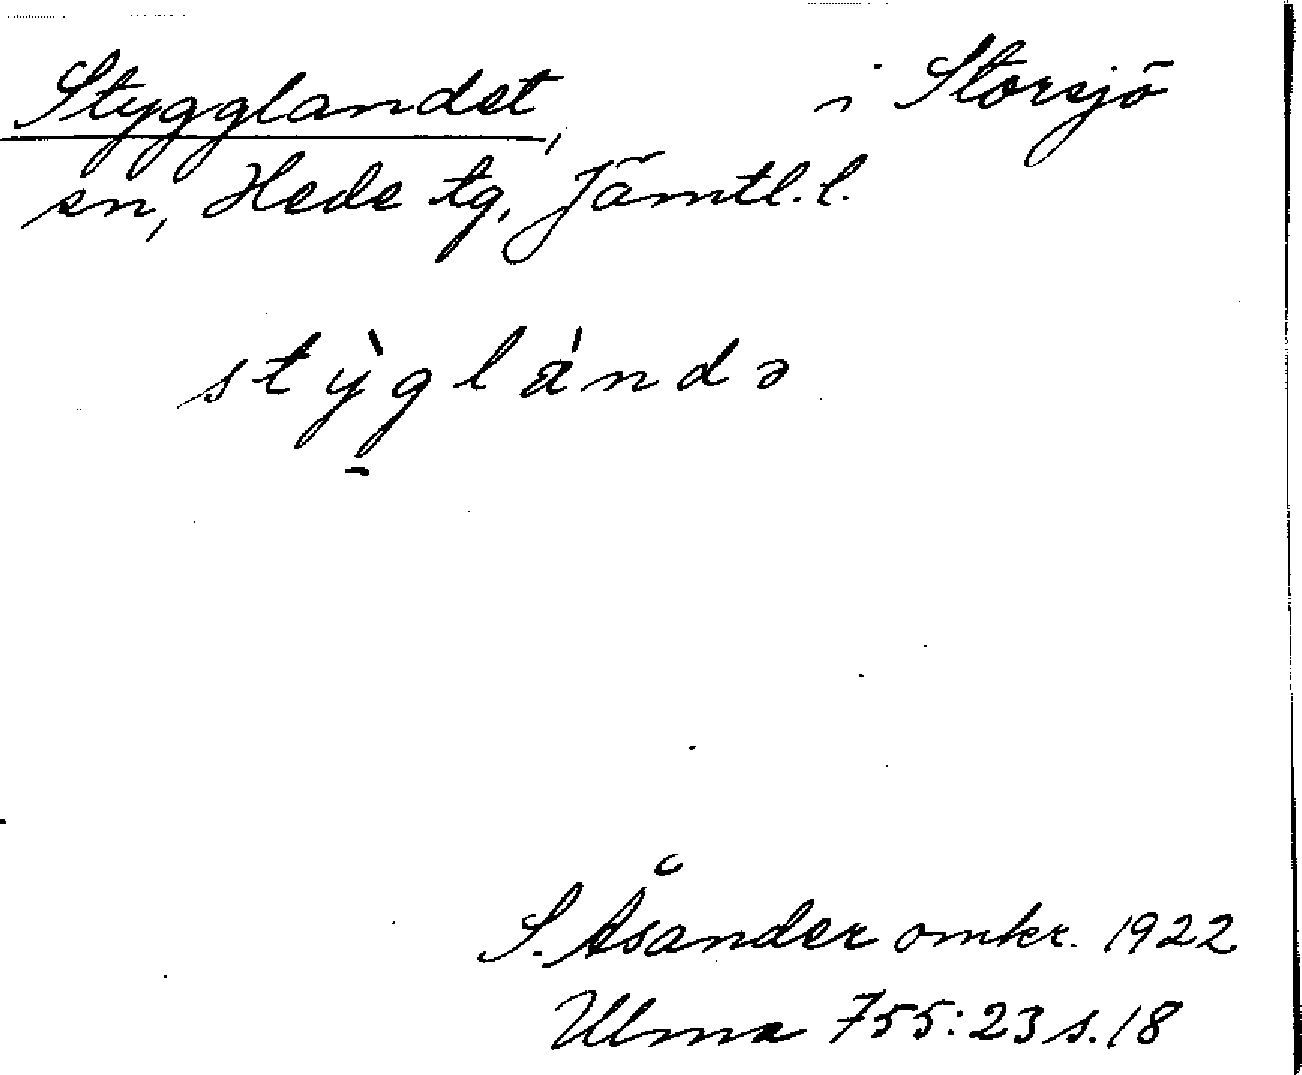 Stygglandet, i Storsjö
sn, Hede tg, Jämtl.l.
stỳg̱lándə
S. Åsander omkr. 1922
Ulma 755:23 s.18